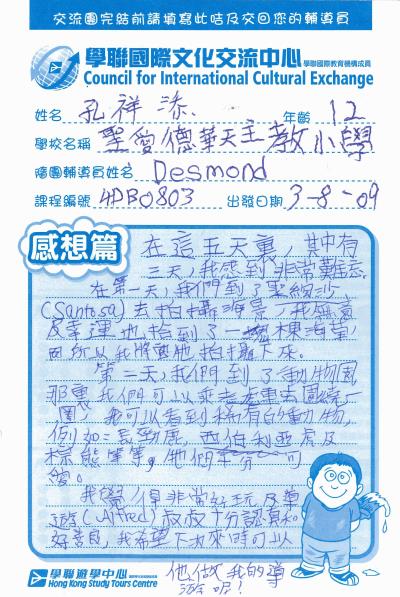 交流團完結前請填寫此咭及交回您的輔導員
學聯國際文化交流中心 學聯國際教育機構成員
Council for International Cultural Exchange
姓名 孔祥添 年齡 12
學校名稱 聖愛德華天主教小學
隨團輔導員姓名 Desmond
課程編號 4DB0803 出發日期 3-8-09
感想篇
在這五天裏，其中有
三天，我感到非常難忘。
在第一天，我們到了聖淘沙
(Santosa)去拍攝海景，我無意
及幸運地拾到了一塊
所以我將它拍攝下來。
第二天，我們到了動物園
那裏我們可以乘
圈。我可以看到稀有的動物，
例如：長頸鹿，西伯利亞虎及
棕熊等等，他們十分可
愛。
我覺得非常好玩及導
遊(Alfred)叔叔十分認真和
好，我希望下次來時可以
他做我的導
遊呢！
學聯遊學中心
Hong Kong Study Tours Centre